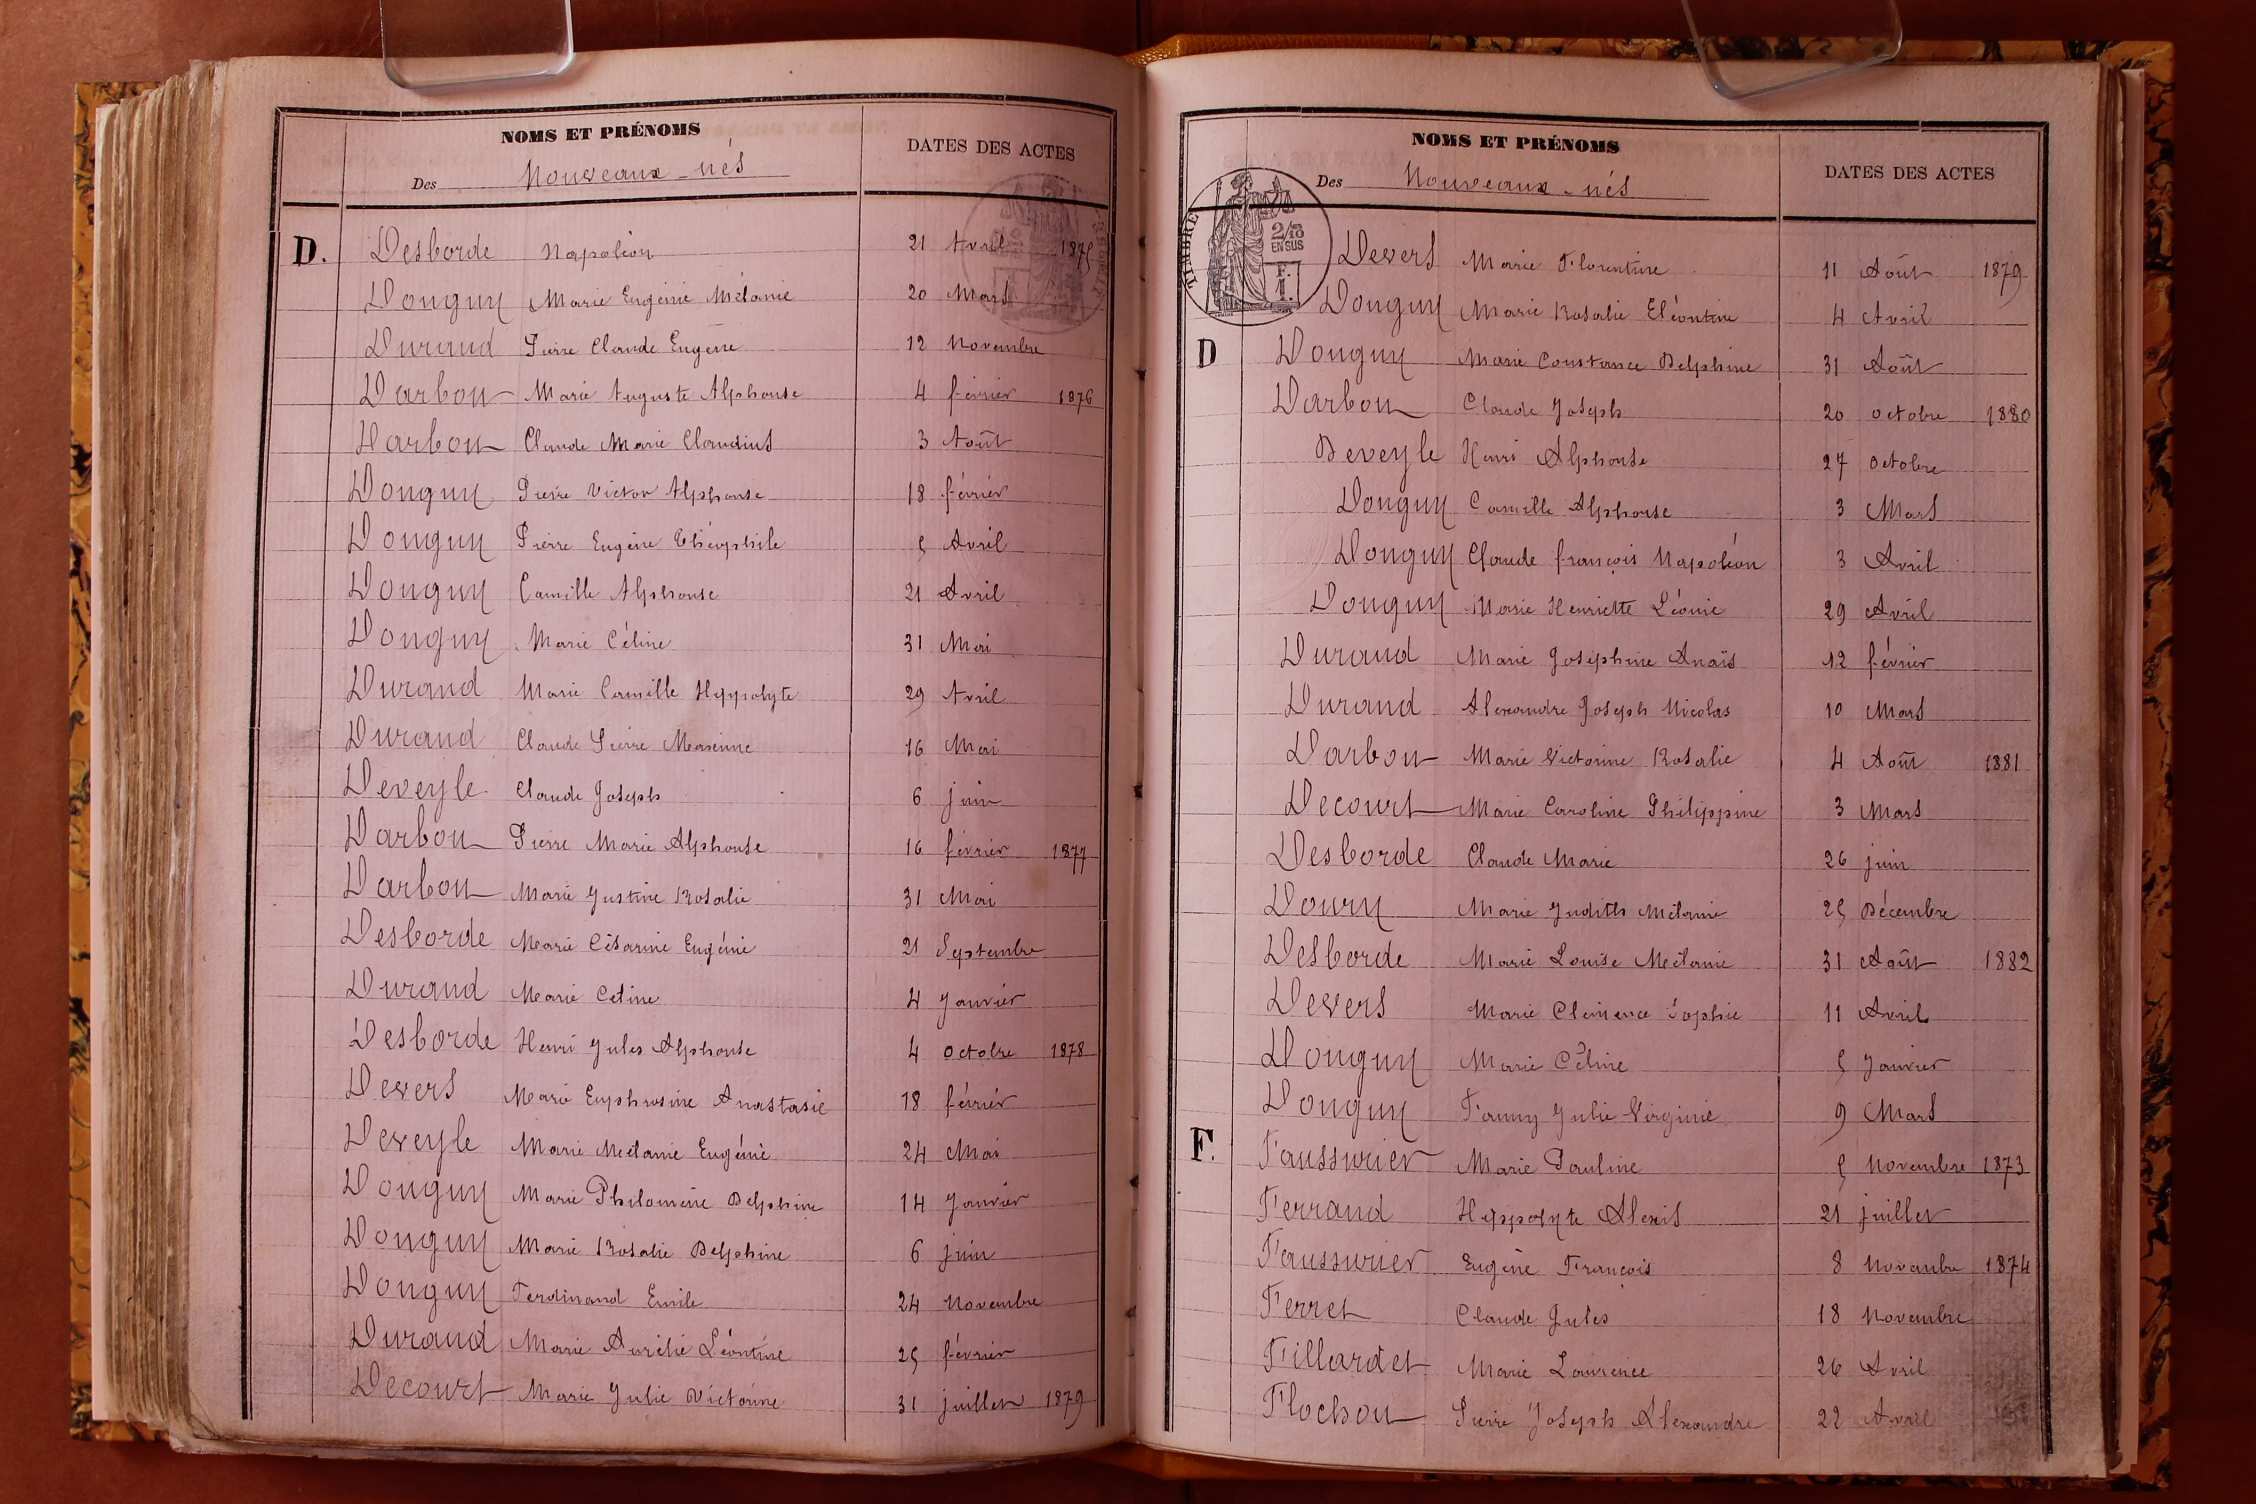 NOMS ET PRÉNOMS
DATES DES ACTES
Des Nouveaux-nés
D. Desborde Napoléon 21 Avril 1875
Donguy Marie Eugénie Mélanie 20 Mars
Durand Pierre Claude Eugène 12 Novembre
Darbon Marie Auguste Alphonse 4 février 1876
Darbon Claude Marie Claudius 3 Août
Donguy Pierre Victor Alphonse 18 février
Donguy Pierre Eugène Théophile 5 Avril
Donguy Camille Alphonse 21 Avril
Donguy Marie Céline 31 Mai
Durand Marie Camille Hyppolyte 29 Avril
Durand Claude Pierre 16 Mai
Deveyle Claude Joseph 6 juin
Darbon Pierre Marie Alphonse 16 février 1877
Darbon Marie Justine Rosalie 31 Mai
Desborde Marie Césarine Eugénie 21 Septembre
Durand Marie Celine 4 Janvier
Desborde Henri Jules Alphonse 4 octobre 1878
Devers Marie Euphrosine Anastasie 18 février
Deveyle Marie Mélanie Eugénie 24 Mai
Donguy Marie Philomène Delphine 14 Janvier
Donguy Marie Rosalie Delphine 6 juin
Donguy Ferdinand Emile 24 Novembre
Durand Marie Aurélie Léontine 25 février
Decourt Marie Julie Victorine 31 juillet 1879
NOMS ET PRÉNOMS
DATES DES ACTES
Des Nouveaux-nés
TIMBRE
2/10
EN SUS
F.
1.
Devers Marie Florentine 11 Août 1879
Donguy Marie Rosalie Eléontine 4 Avril
D Donguy Marie Constance Delphine 31 Août
Darbon Claude Joseph 20 octobre 1880
Deveyle Henri Alphonse 27 octobre
Donguy Camille Alphonse 3 Mars
Donguy Claude françois Napoléon 3 Avril
Donguy Marie Henriette Léonie 29 Avril
Durand Marie Joséphine Anaïs 12 février
Durand Alexandre Joseph Nicolas 10 Mars
Darbon Marie Victorine Rosalie 4 Août 1881
Decourt Marie Caroline Philippine 3 Mars
Desborde Claude Marie 26 juin
Doury Marie Judith Mélanie 25 Décembre
Desborde Marie Louise Mélanie 31 Août 1882
Devers Marie Clémence Sophie 11 Avril
Donguy Marie Céline 5 Janvier
Donguy Fanny Julie Virginie 9 Mars
F. Faussurier Marie Pauline 5 Novembre 1873
Ferrand Hyppolyte Alexis 21 juillet
Faussurier Eugène François 8 Novembre 1874
Ferret Claude Jules 18 Novembre
Fillardet Marie Laurence 26 Avril
Flochon Pierre Joseph Alexandre 22 Avril